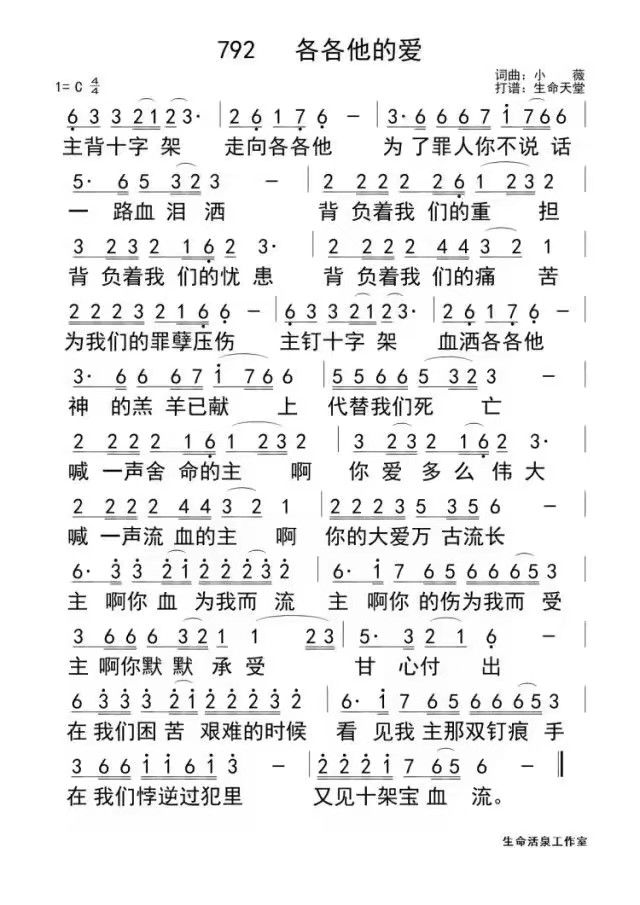 792 各各他的爱
1= C 4/4
词曲：小 薇
打谱：生命天堂
6 3 3 2 1 2 3· | 2 6 1 7 6 － | 3· 6 6 6 7 i 7 6 6 |
主背十字 架 走向各各他 为 了罪人你不说 话
5· 6 5 3 2 3 － | 2 2 2 2 2 6 1 2 3 2 |
一 路血 泪 洒 背 负着我 们的重 担
3 2 3 2 1 6 2 3· | 2 2 2 2 4 4 3 2 1 |
背 负着我 们的忧 患 背 负着我 们的痛 苦
2 2 2 3 2 1 6 6 － | 6 3 3 2 1 2 3· | 2 6 1 7 6 － |
为我们的罪孽压伤 主钉十字 架 血洒各各他
3· 6 6 6 7 i 7 6 6 | 5 5 6 6 5 3 2 3 － |
神 的羔 羊已献 上 代替我们死 亡
2 2 2 2 1 6 1 2 3 2 | 3 2 3 2 1 6 2 3· |
喊 一声舍 命的主 啊 你 爱 多 么 伟 大
2 2 2 2 4 4 3 2 1 | 2 2 2 3 5 3 5 6 － |
喊 一声流 血的主 啊 你的大爱万 古流长
6· 3 3 2 1 2 2 2 3 2 | 3· i 7 6 5 6 6 6 5 3 |
主 啊你 血 为我而 流 主 啊你 的伤为我而 受
3 6 6 6 6 3 2 1 1 2 3 | 5· 3 2 1 6 － |
主 啊你默 默 承 受 甘 心付 出
6 3 3 3 2 1 2 2 2 3 2 | 6· i 7 6 5 6 6 6 5 3 |
在 我们困 苦 艰难的时候 看 见我 主那双钉痕 手
3 6 6 i i 6 i 3 － | 2 2 2 i 7 6 5 6 － ‖
在 我们悖逆过犯里 又见十架宝 血 流。
生命活泉工作室